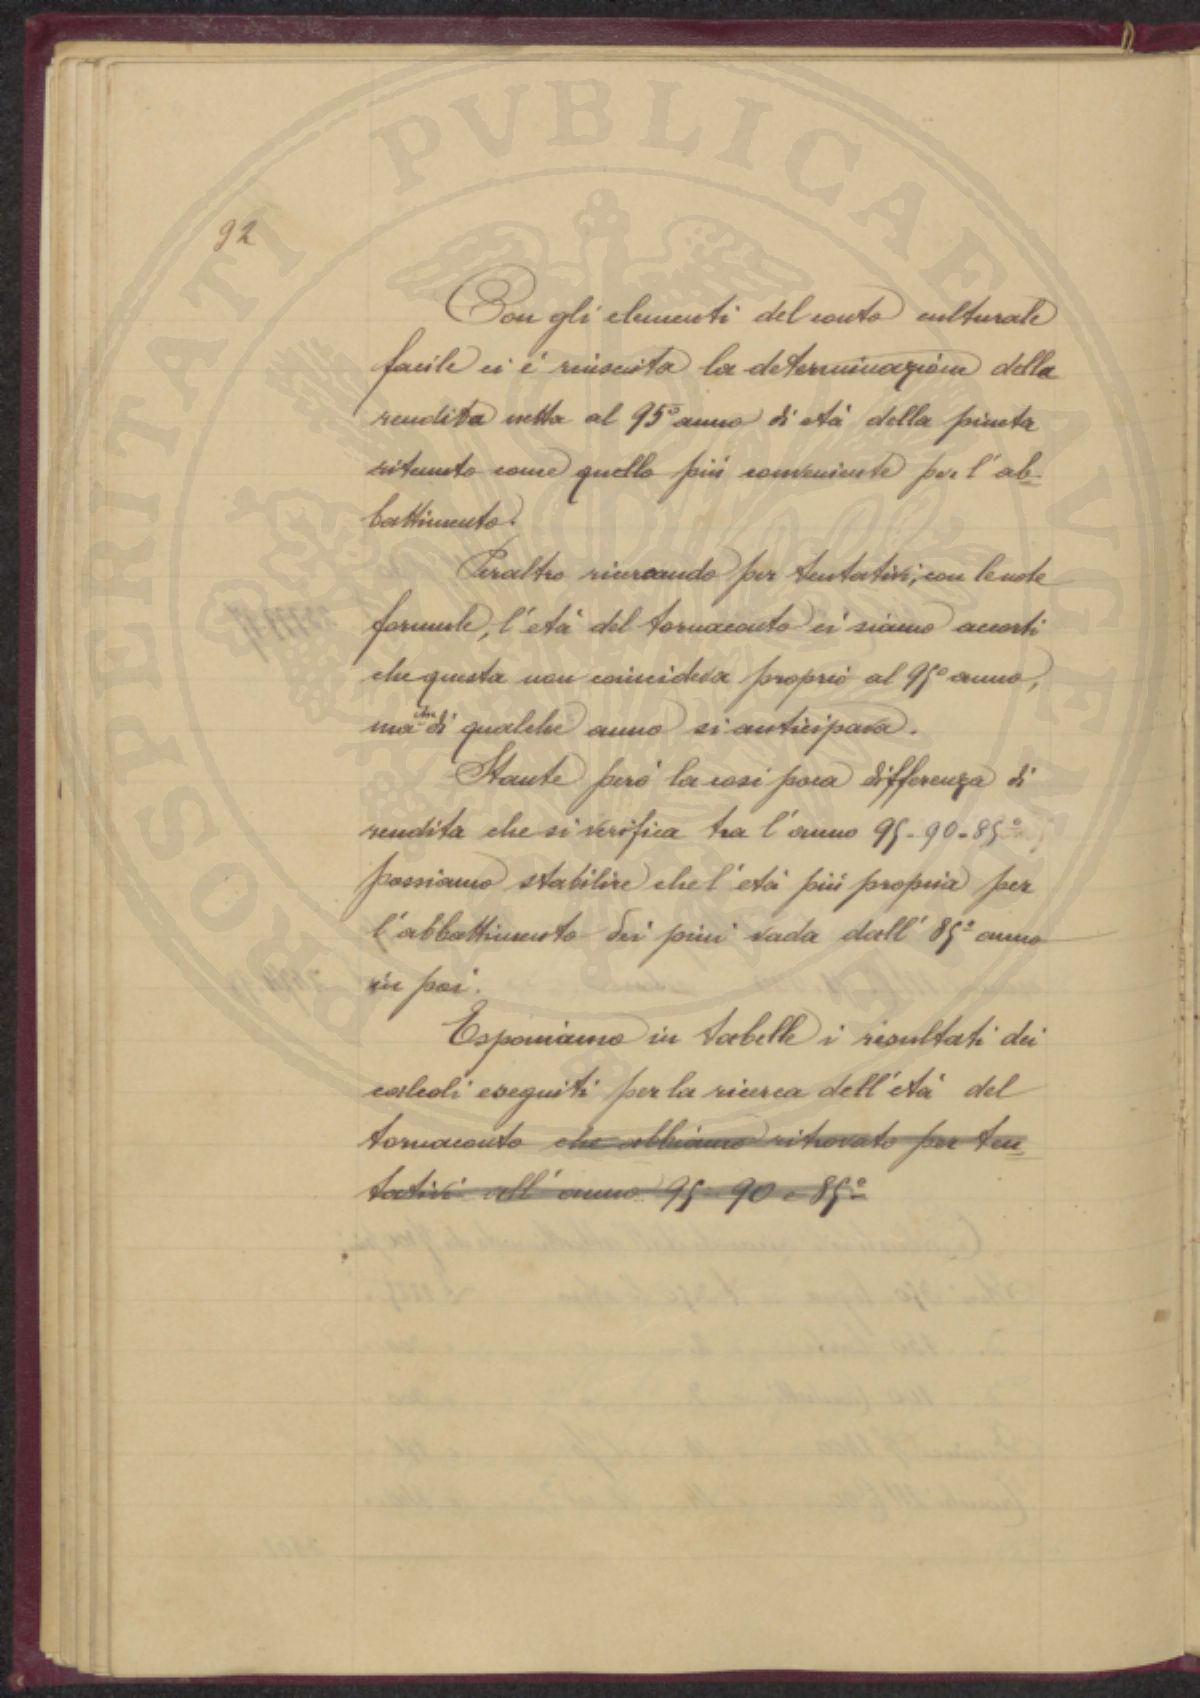 PROSPERITATI PVBLICAE AVGENDAE
92
Con gli elementi del conto culturale
facile ci è riuscita la determinazione della
rendita netta al 95º anno di età della pineta
ritenuto come quello più conveniente per l'ab-
battimento.
Peraltro ricercando per tentativi, con le note
formule, l'età del tornaconto ci siamo accorti
che questa non coincideva proprio al 95º anno,
ma che di qualche anno si anticipava.
Stante però la così poca differenza di
rendita che si verifica tra l'anno 95-90-85º
possiamo stabilire che l'età più propria per
l'abbattimento dei pini vada dall' 85º anno
in poi.
Esponiamo in tabelle i risultati dei
calcoli eseguiti per la ricerca dell'età del
tornaconto che abbiamo ritrovato per ten-
tativi all'anno 95-90 e 85º